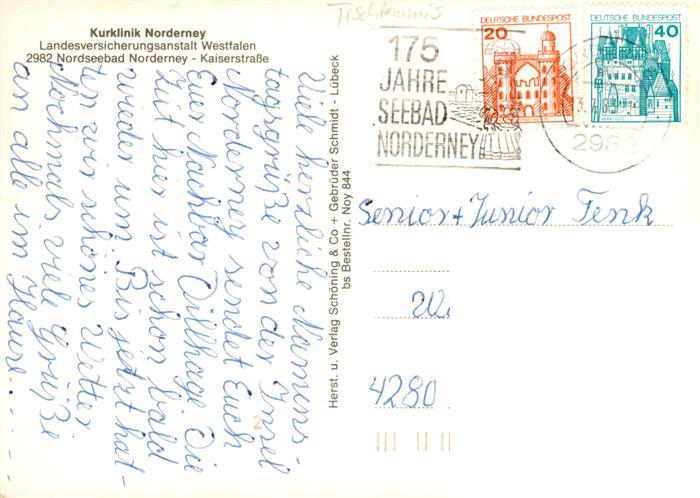 Tischtennis
Kurklinik Norderney
Landesversicherungsanstalt Westfalen
2982 Nordseebad Norderney - Kaiserstraße
Viele herzliche Namens-
tagsgrüße von der Insel
Norderney sendet Euch
Euer Nachbar Dillhage. Die
Zeit hier ist schon bald
wieder um. Bis jetzt hat-
ten wir schönes Wetter
Nochmals viele Grüße
an alle im Hause.....
Herst. u. Verlag Schöning & Co + Gebrüder Schmidt - Lübeck
bs Bestellnr. Noy 844
175
JAHRE
SEEBAD
NORDERNEY
DEUTSCHE BUNDESPOST
20
DEUTSCHE BUNDESPOST
40
BURG ELTZ
2982
Senior + Junior Tenk
4280